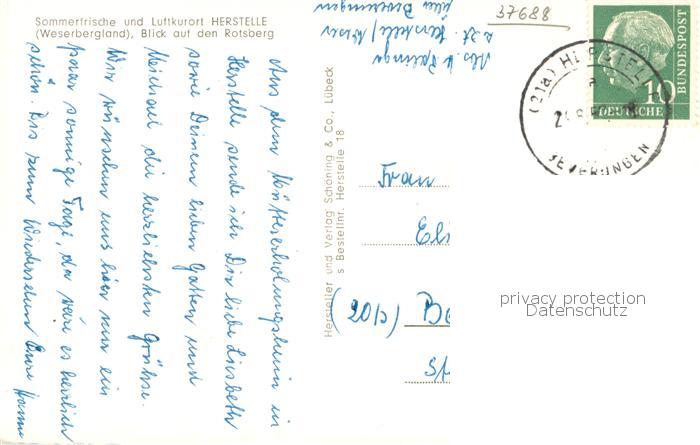 Sommerfrische und Luftkurort HERSTELLE
(Weserbergland), Blick auf den Rotsberg
Aus dem Müttererholungsheim in
Herstelle sende ich Dir liebe Lisbeth
sowie Deinem lieben Gatten und
Michael die herzlichsten Grüsse.
Wir wünschen uns hier nur ein
paar sonnige Tage, da wäre es herrlich
schön. Bis zum Wiedersehen Eure Hanni
Hersteller und Verlag Schöning & Co., Lübeck
s Bestellnr. Herstelle 18
Abs.
z. Zt. Herstelle/Weser
über Beverungen
37688
(21a) HERSTELLE
BEVERUNGEN
10
DEUTSCHE
BUNDESPOST
Frau
Eli
(20b) Be
St
privacy protection
Datenschutz